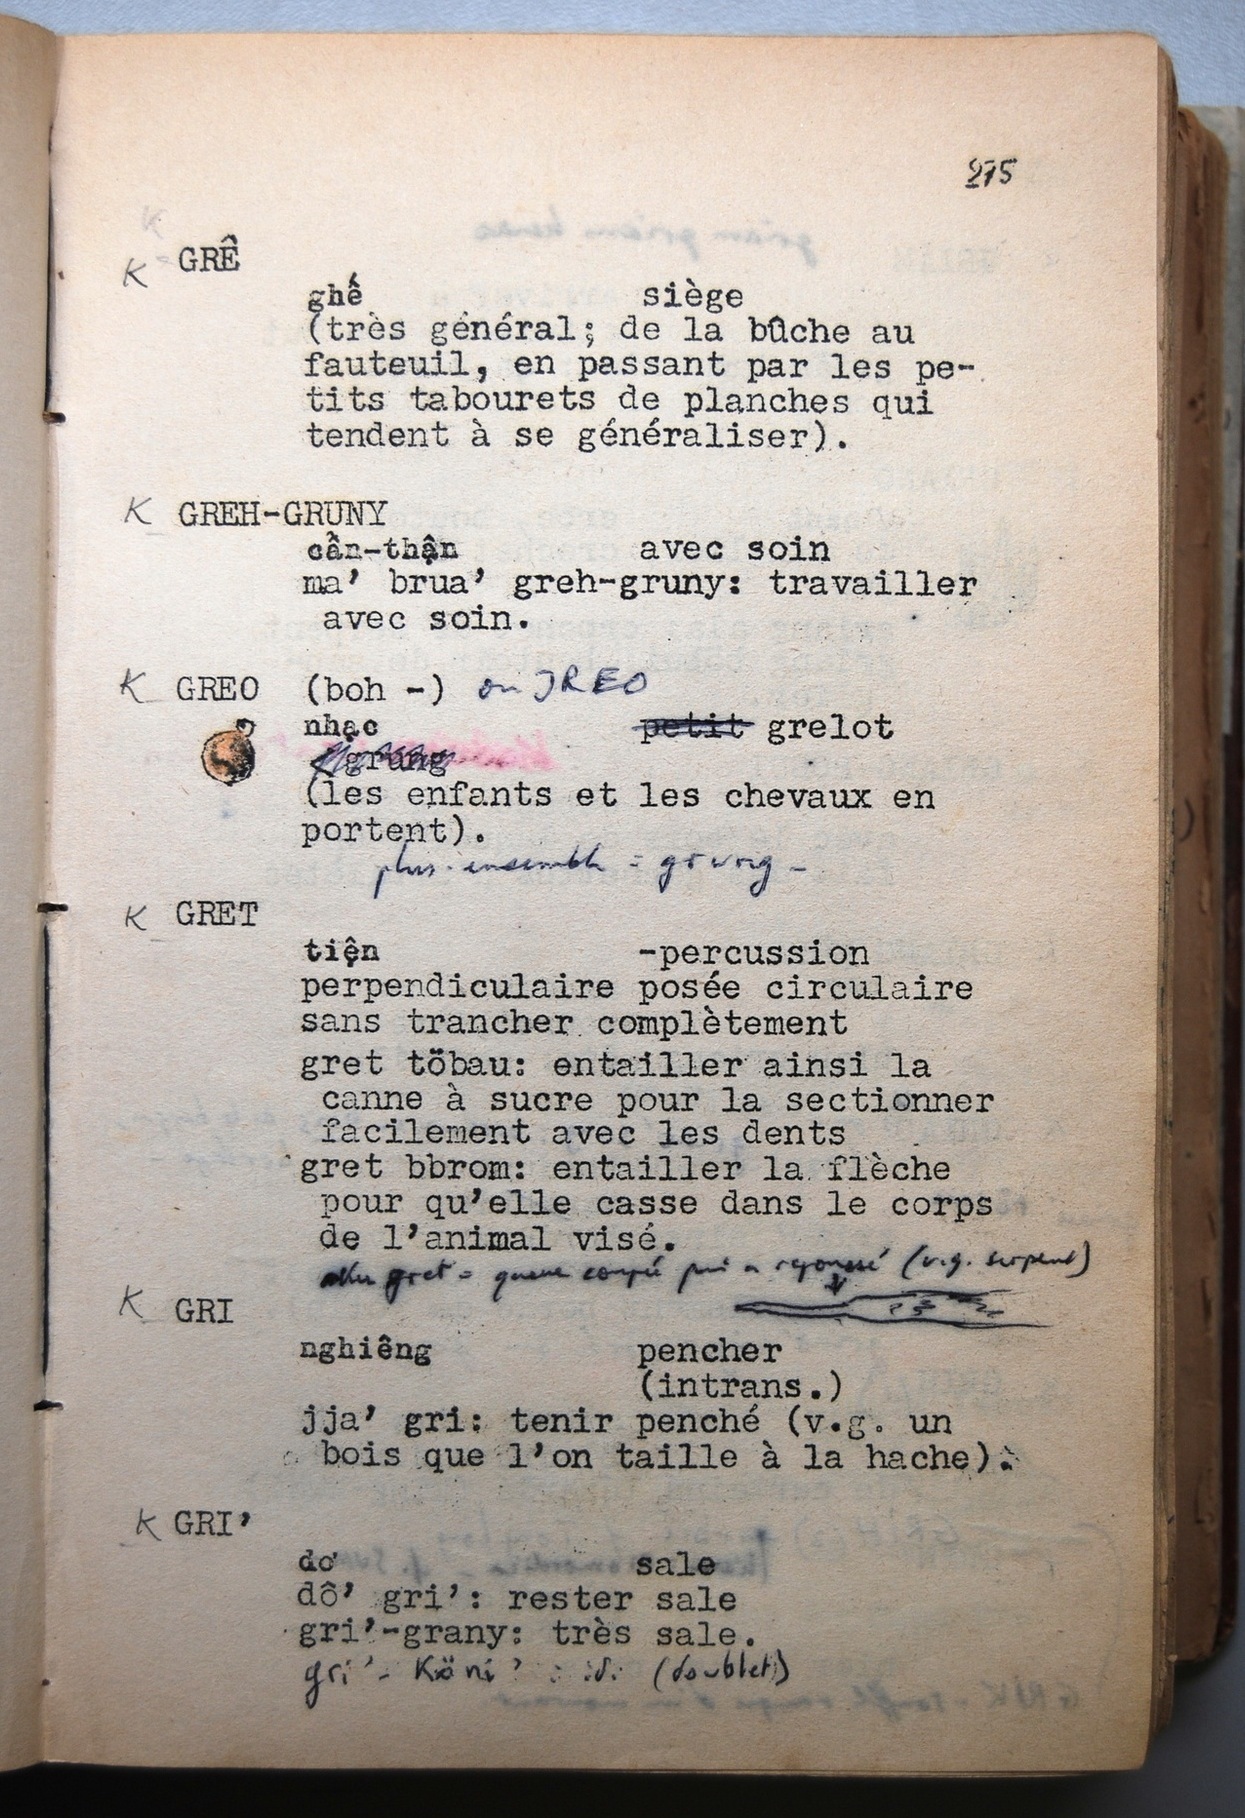 275
K GRÊ
ghế siège
(très général; de la bûche au
fauteuil, en passant par les pe-
tits tabourets de planches qui
tendent à se généraliser).
K GREH-GRUNY
cẩn-thận avec soin
ma’ brua’ greh-gruny: travailler
avec soin.
K GREO (boh -) ou JREO
nhạc petit grelot
grung
(les enfants et les chevaux en
portent).
plus. ensemble = grung -
K GRET
tiện -percussion
perpendiculaire posée circulaire
sans trancher complètement
gret töbau: entailler ainsi la
canne à sucre pour la sectionner
facilement avec les dents
gret bbrom: entailler la flèche
pour qu’elle casse dans le corps
de l’animal visé.
gret = queue coupée qui a repoussé (v.g. serpent)
K GRI
nghiêng pencher
(intrans.)
jja’ gri: tenir penché (v.g. un
bois que l’on taille à la hache).
K GRI’
dơ sale
dô’ gri’: rester sale
gri’-grany: très sale.
gri’- Köni’ : id. (doublet)